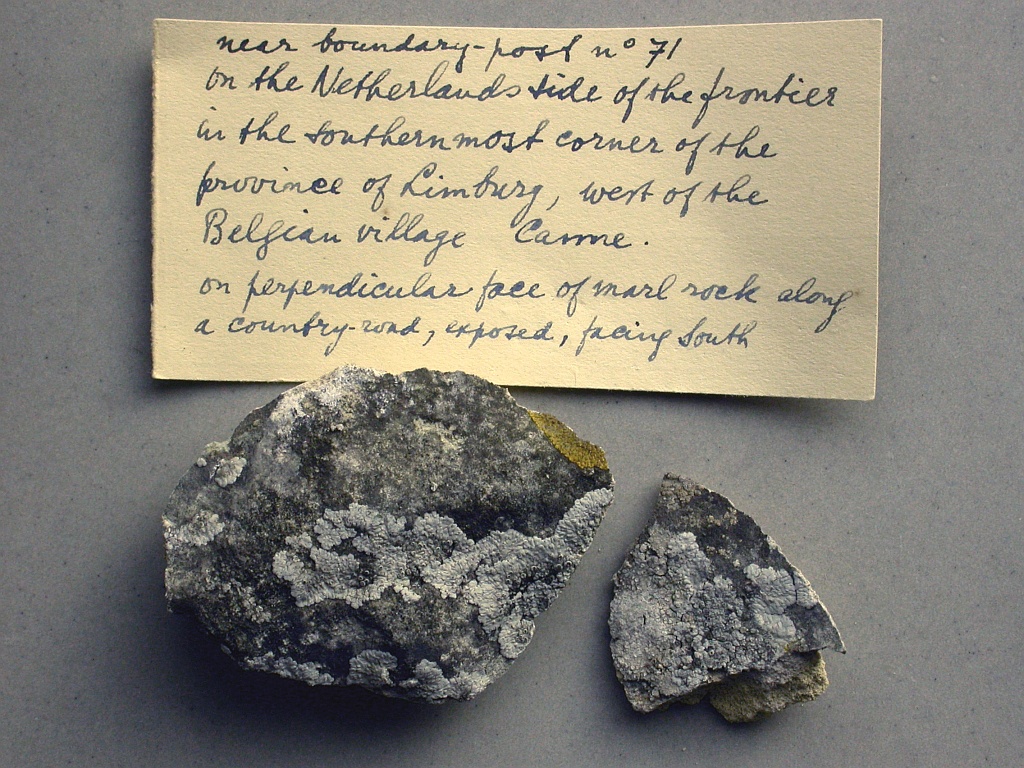 near boundary-post n° 71
on the Netherlands side of the frontier
in the southernmost corner of the
province of Limburg, west of the
Belgian village Canne.
on perpendicular face of marl rock along
a country-road, exposed, facing South